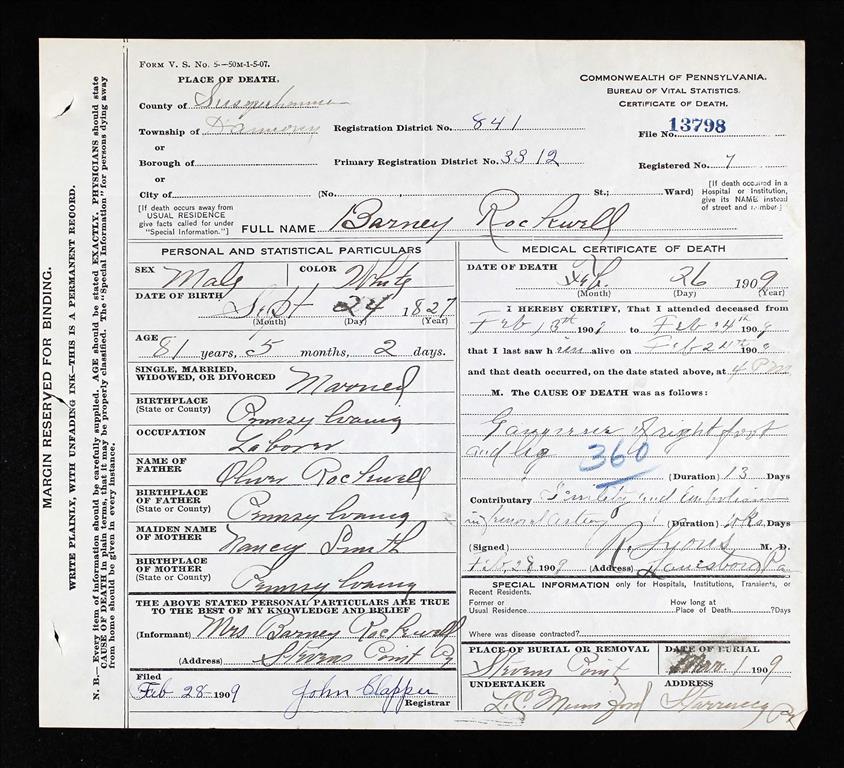 FORM V. S. No. 5—50M-1-5-07.
PLACE OF DEATH.
County of Susquehanna
Township of Harmony
or
Borough of
or
City of
[If death occurs away from
USUAL RESIDENCE
give facts called for under
"Special Information."]
Registration District No. 841
Primary Registration District No. 3312
(No. , St.; Ward)
COMMONWEALTH OF PENNSYLVANIA.
BUREAU OF VITAL STATISTICS.
CERTIFICATE OF DEATH.
File No. 13798
Registered No. 7
[If death occurred in a
Hospital or Institution,
give its NAME instead
of street and number.]
FULL NAME Barney Rockwell
PERSONAL AND STATISTICAL PARTICULARS
SEX Male COLOR White
DATE OF BIRTH Sept 24 1827
(Month) (Day) (Year)
AGE
81 years, 5 months, 2 days.
SINGLE, MARRIED,
WIDOWED, OR DIVORCED Married
BIRTHPLACE
(State or County) Pennsylvania
OCCUPATION
Laborer
NAME OF
FATHER Oliver Rockwell
BIRTHPLACE
OF FATHER
(State or County) Pennsylvania
MAIDEN NAME
OF MOTHER Nancy Smith
BIRTHPLACE
OF MOTHER
(State or County) Pennsylvania
THE ABOVE STATED PERSONAL PARTICULARS ARE TRUE
TO THE BEST OF MY KNOWLEDGE AND BELIEF
(Informant) Mrs Barney Rockwell
(Address) Stevens Point Pa
Filed
Feb 28 1909 John Clapper
Registrar
MEDICAL CERTIFICATE OF DEATH
DATE OF DEATH Feb. 26 1909
(Month) (Day) (Year)
I HEREBY CERTIFY, That I attended deceased from
Feb 13th 190 to Feb 24th 190
that I last saw him alive on Feb 24th 190
and that death occurred, on the date stated above, at 4 PM
M. The CAUSE OF DEATH was as follows:
Gangrene of right foot
and leg 360
(Duration) 13 Days
Contributory Senility and Embolism
in femoral artery (Duration) wks Days
(Signed) R. Lyons M. D.
Feb. 28 1909 (Address) Lanesboro Pa
SPECIAL INFORMATION only for Hospitals, Institutions, Transients, or
Recent Residents.
Former or
Usual Residence
How long at
Place of Death ?Days
Where was disease contracted?
PLACE OF BURIAL OR REMOVAL
Stevens Point
DATE OF BURIAL
Mar. 1 1909
UNDERTAKER
ADDRESS
Starrucca Pa
MARGIN RESERVED FOR BINDING.
WRITE PLAINLY, WITH UNFADING INK—THIS IS A PERMANENT RECORD.
N. B.—Every item of information should be carefully supplied. AGE should be stated EXACTLY. PHYSICIANS should state
CAUSE OF DEATH in plain terms, that it may be properly classified. The "Special Information" for persons dying away
from home should be given in every instance.